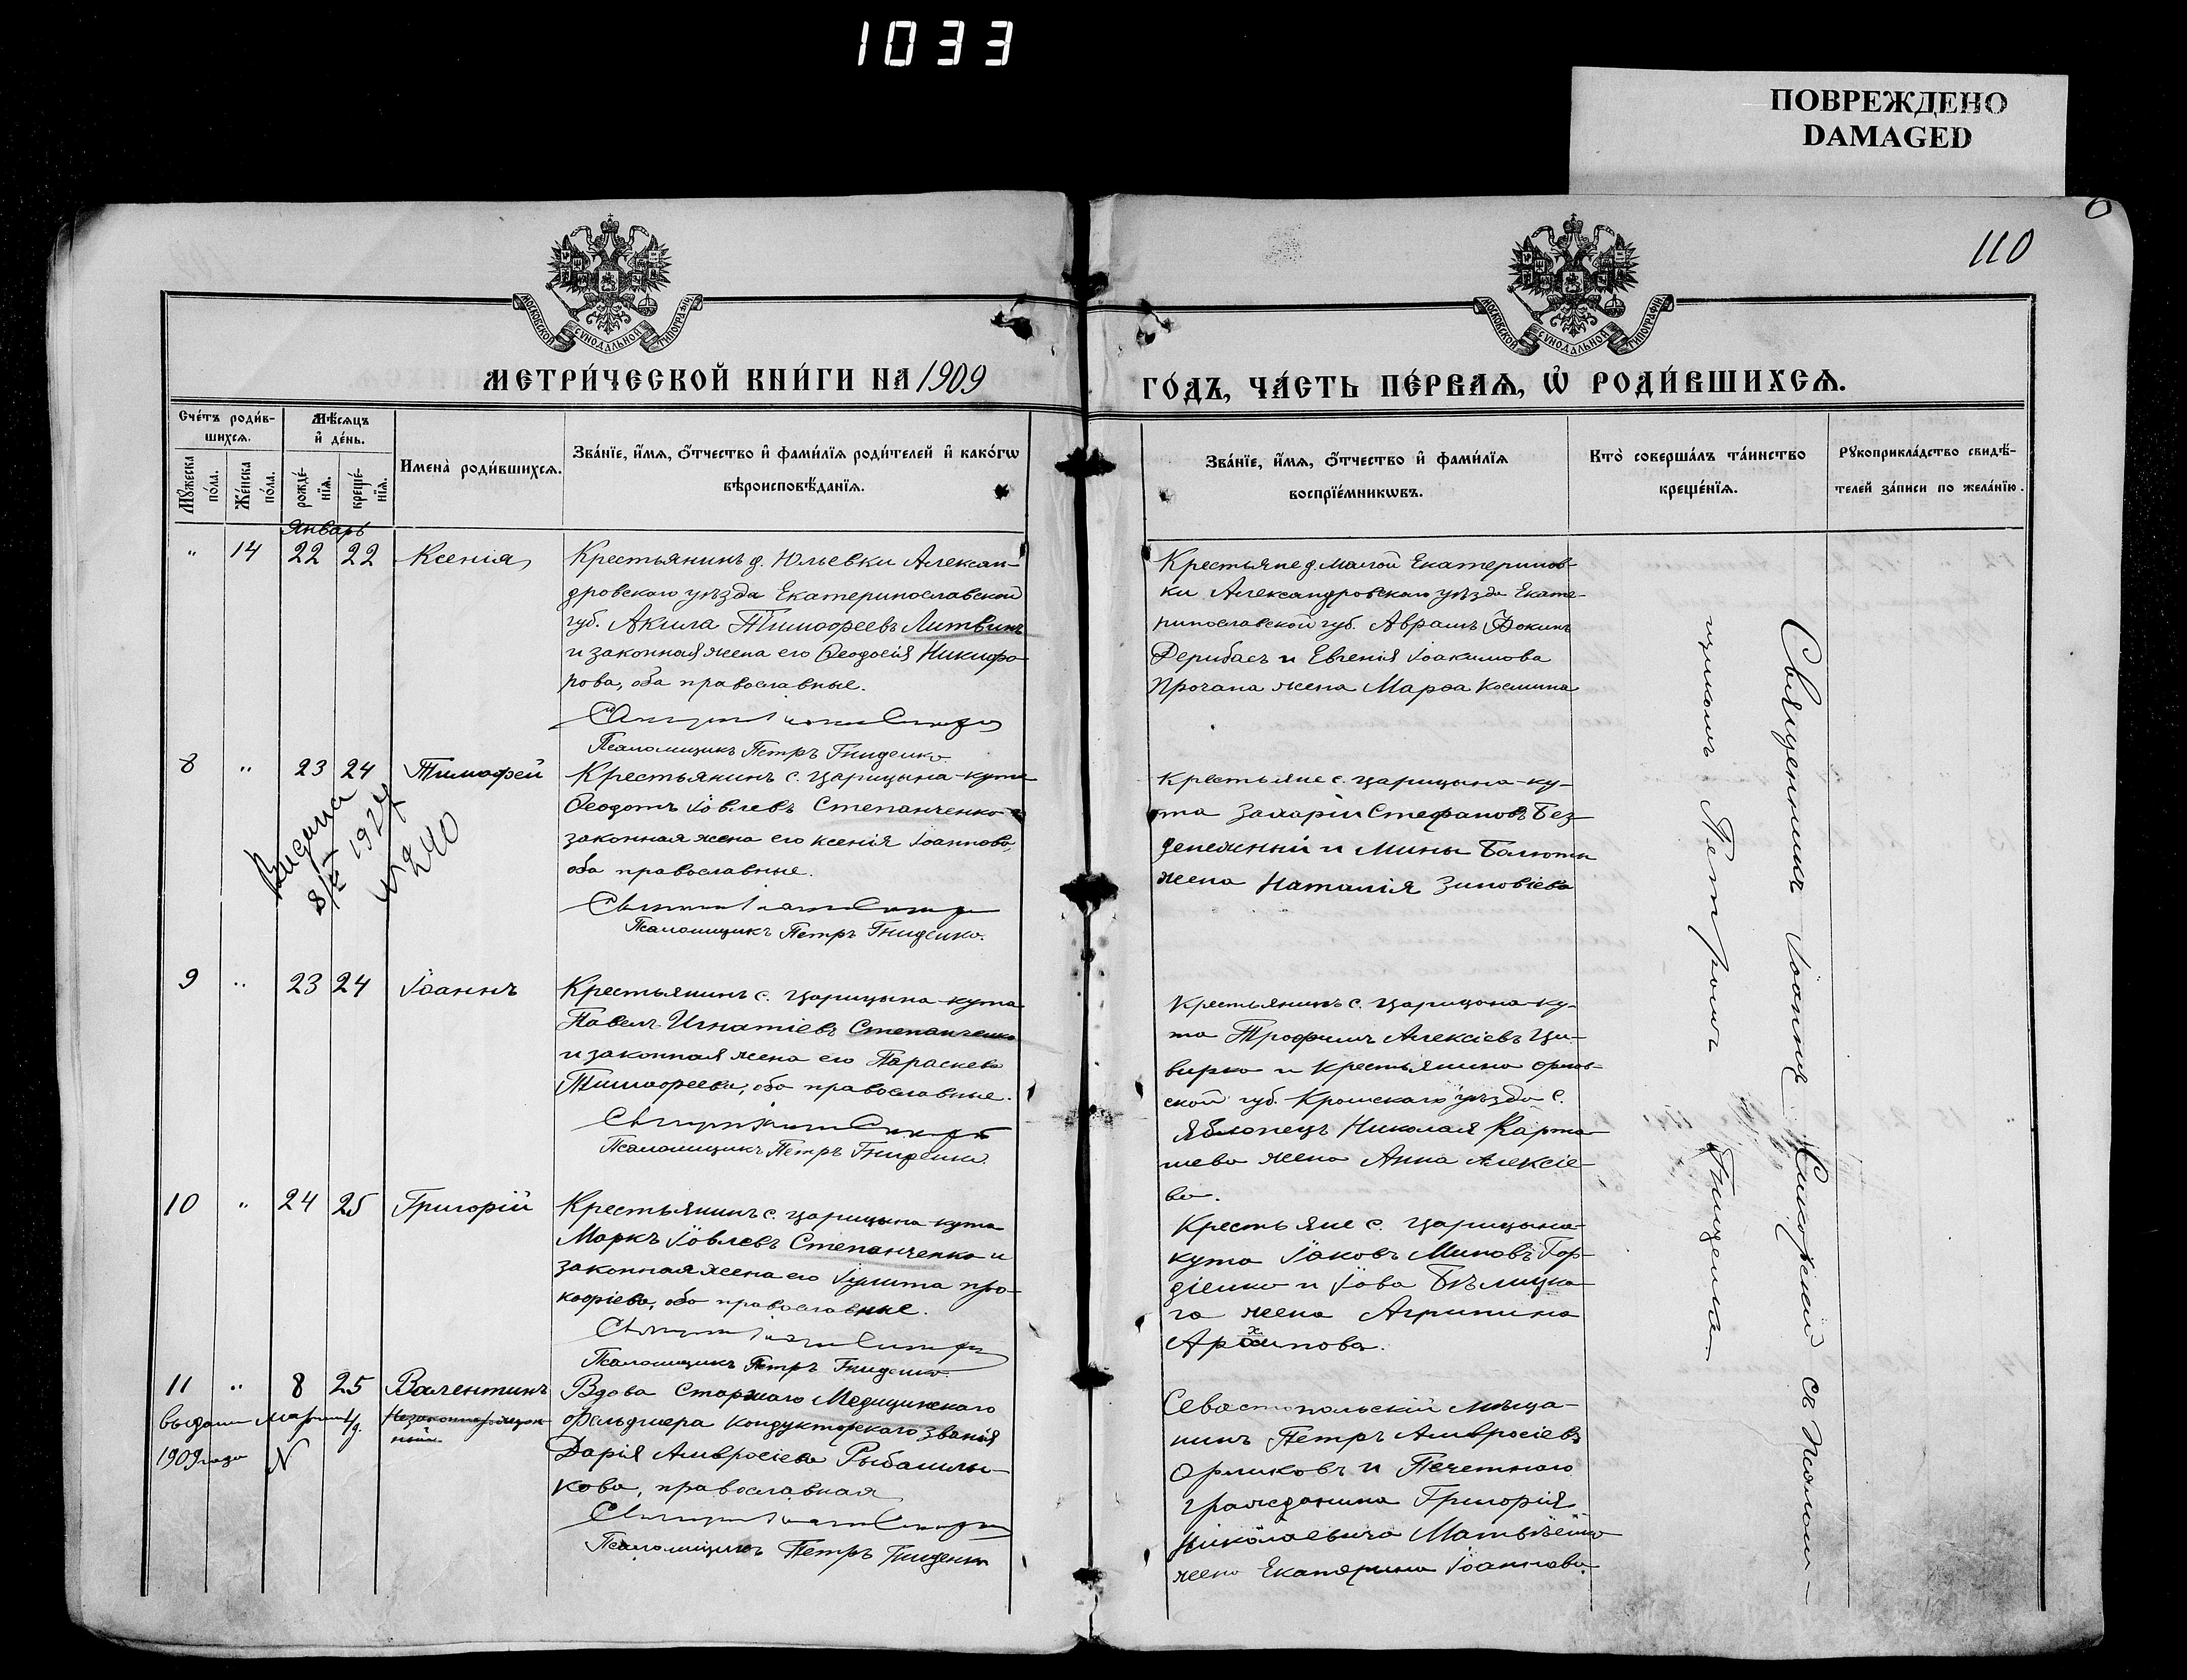 1033
ПОВРЕЖДЕНО
DAMAGED
110
МОСКОВСКОЙ СѴНОДАЛЬНОЙ ТИПОГРАФІИ
МОСКОВСКОЙ СѴНОДАЛЬНОЙ ТИПОГРАФІИ
МЕТРИ́ЧЕСКОЙ КНИ́ГИ НА 1909
ГО́ДЪ, ЧА́СТЬ ПЕ́РВАѦ, Ѡ҆ РОДИ́ВШИХСѦ.
Сче́тъ роди́в-
шихсѧ.
Мѣ́сѧцъ
и҆ де́нь.
Мꙋ́жеска по́ла.
Же́нска по́ла.
рожде́нїѧ.
креще́нїѧ.
Имена̀ роди́вшихсѧ.
Зва́нїе, и҆́мѧ, ѻ҆́тчество и҆ фами́лїѧ роди́телей и҆ како́гѡ
вѣроисповѣ́данїѧ.
Зва́нїе, и҆́мѧ, ѻ҆́тчество и҆ фами́лїѧ
воспрїе́мникѡвъ.
Кто̀ соверша́лъ та́инство
креще́нїѧ.
Рꙋкоприкла́дство свидѣ́-
телей за́писи по жела́нїю.
Январь
" 14 22 22 Ксенія
Крестьянинъ д. Юльевки Алексан-
дровскаго уѣзда Екатеринославской
губ. Акила Тимоѳеевъ Литвинъ
и законная жена его Ѳеодосія Никифо-
рова, оба православные.
Псаломщикъ Петръ Гниденко
Крестьяне д. Малой Екатеринов-
ки Александровскаго уѣзда Екате-
ринославской губ. Аврамъ Фокинъ
Дерибасъ и Евгенія Іоакимова
Прочана жена Марѳа Космина
8 " 23 24 Тимофей
Выдана
8/IX 1924
№ 240
Крестьянинъ с. Царицына-кута
Ѳеодотъ Іовлевъ Степанченко и
законная жена его Ксенія Іоаннова,
оба православные.
Псаломщикъ Петръ Гниденко.
Крестьяне с. Царицына-ку-
та Захарій Стефановъ Без-
денежный и Мины Балюты
жена Наталія Зиновіева
9 " 23 24 Іоаннъ
Крестьянинъ с. Царицына-кута
Павелъ Игнатіевъ Степанченко
и законная жена его Параскева
Тимоѳеева, оба православные.
Псаломщикъ Петръ Гниденко.
Крестьянинъ с. Царицына-ку-
та Трофимъ Алексіевъ Ци-
вирко и крестьянина Орлов-
ской губ. Кромскаго уѣзда с.
Яблонецъ Николая Карта-
шева жена Анна Алексіе-
ва.
10 " 24 25 Григорій
Крестьянинъ с. Царицына-кута
Маркъ Іовлевъ Степанченко и
законная жена его Іулита Про-
кофіева, оба православные.
Псаломщикъ Петръ Гниденко.
Крестьяне с. Царицына-
кута Іаковъ Миновъ Гор-
діенко и Іова Бѣлицка-
го жена Агрипина
Архипова.
11 " 8 25 Валентинъ
выдана марта 4 д.
1909 года №
Незаконнорожден-
ный
Вдова Старшаго Медицинскаго
фельдшера кондукторскаго званія
Дарія Амвросіева Рыбальчи-
кова, православная
Псаломщикъ Петръ Гниденко
Севастопольскій мѣща-
нинъ Петръ Амвросіевъ
Орликовъ и Почетнаго
гражданина Григорія
Николаевича Матвѣенко
жена Екатерина Іоаннова.
Священникъ Іоаннъ Сикорскій съ псалом-
щикомъ Петромъ Гниденко.